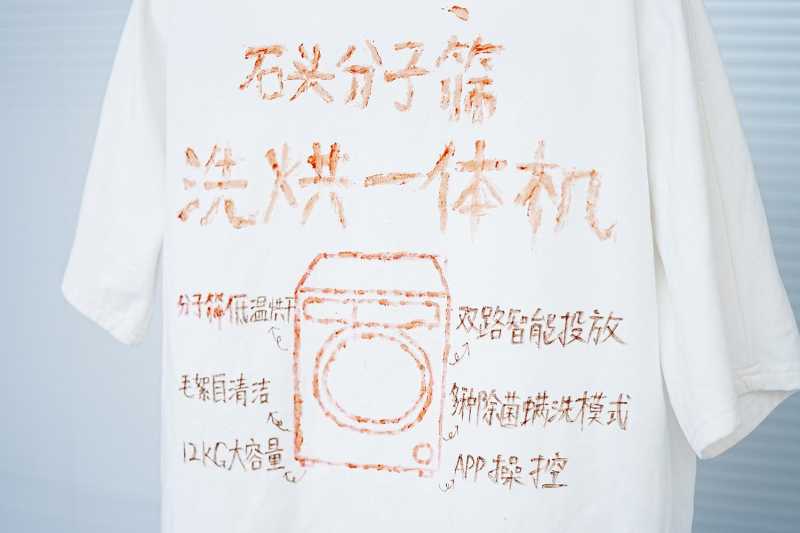 石头分子筛
洗烘一体机
分子筛低温烘干
双路智能投放
毛絮自清洁
多种除菌螨洗模式
12KG大容量
APP操控